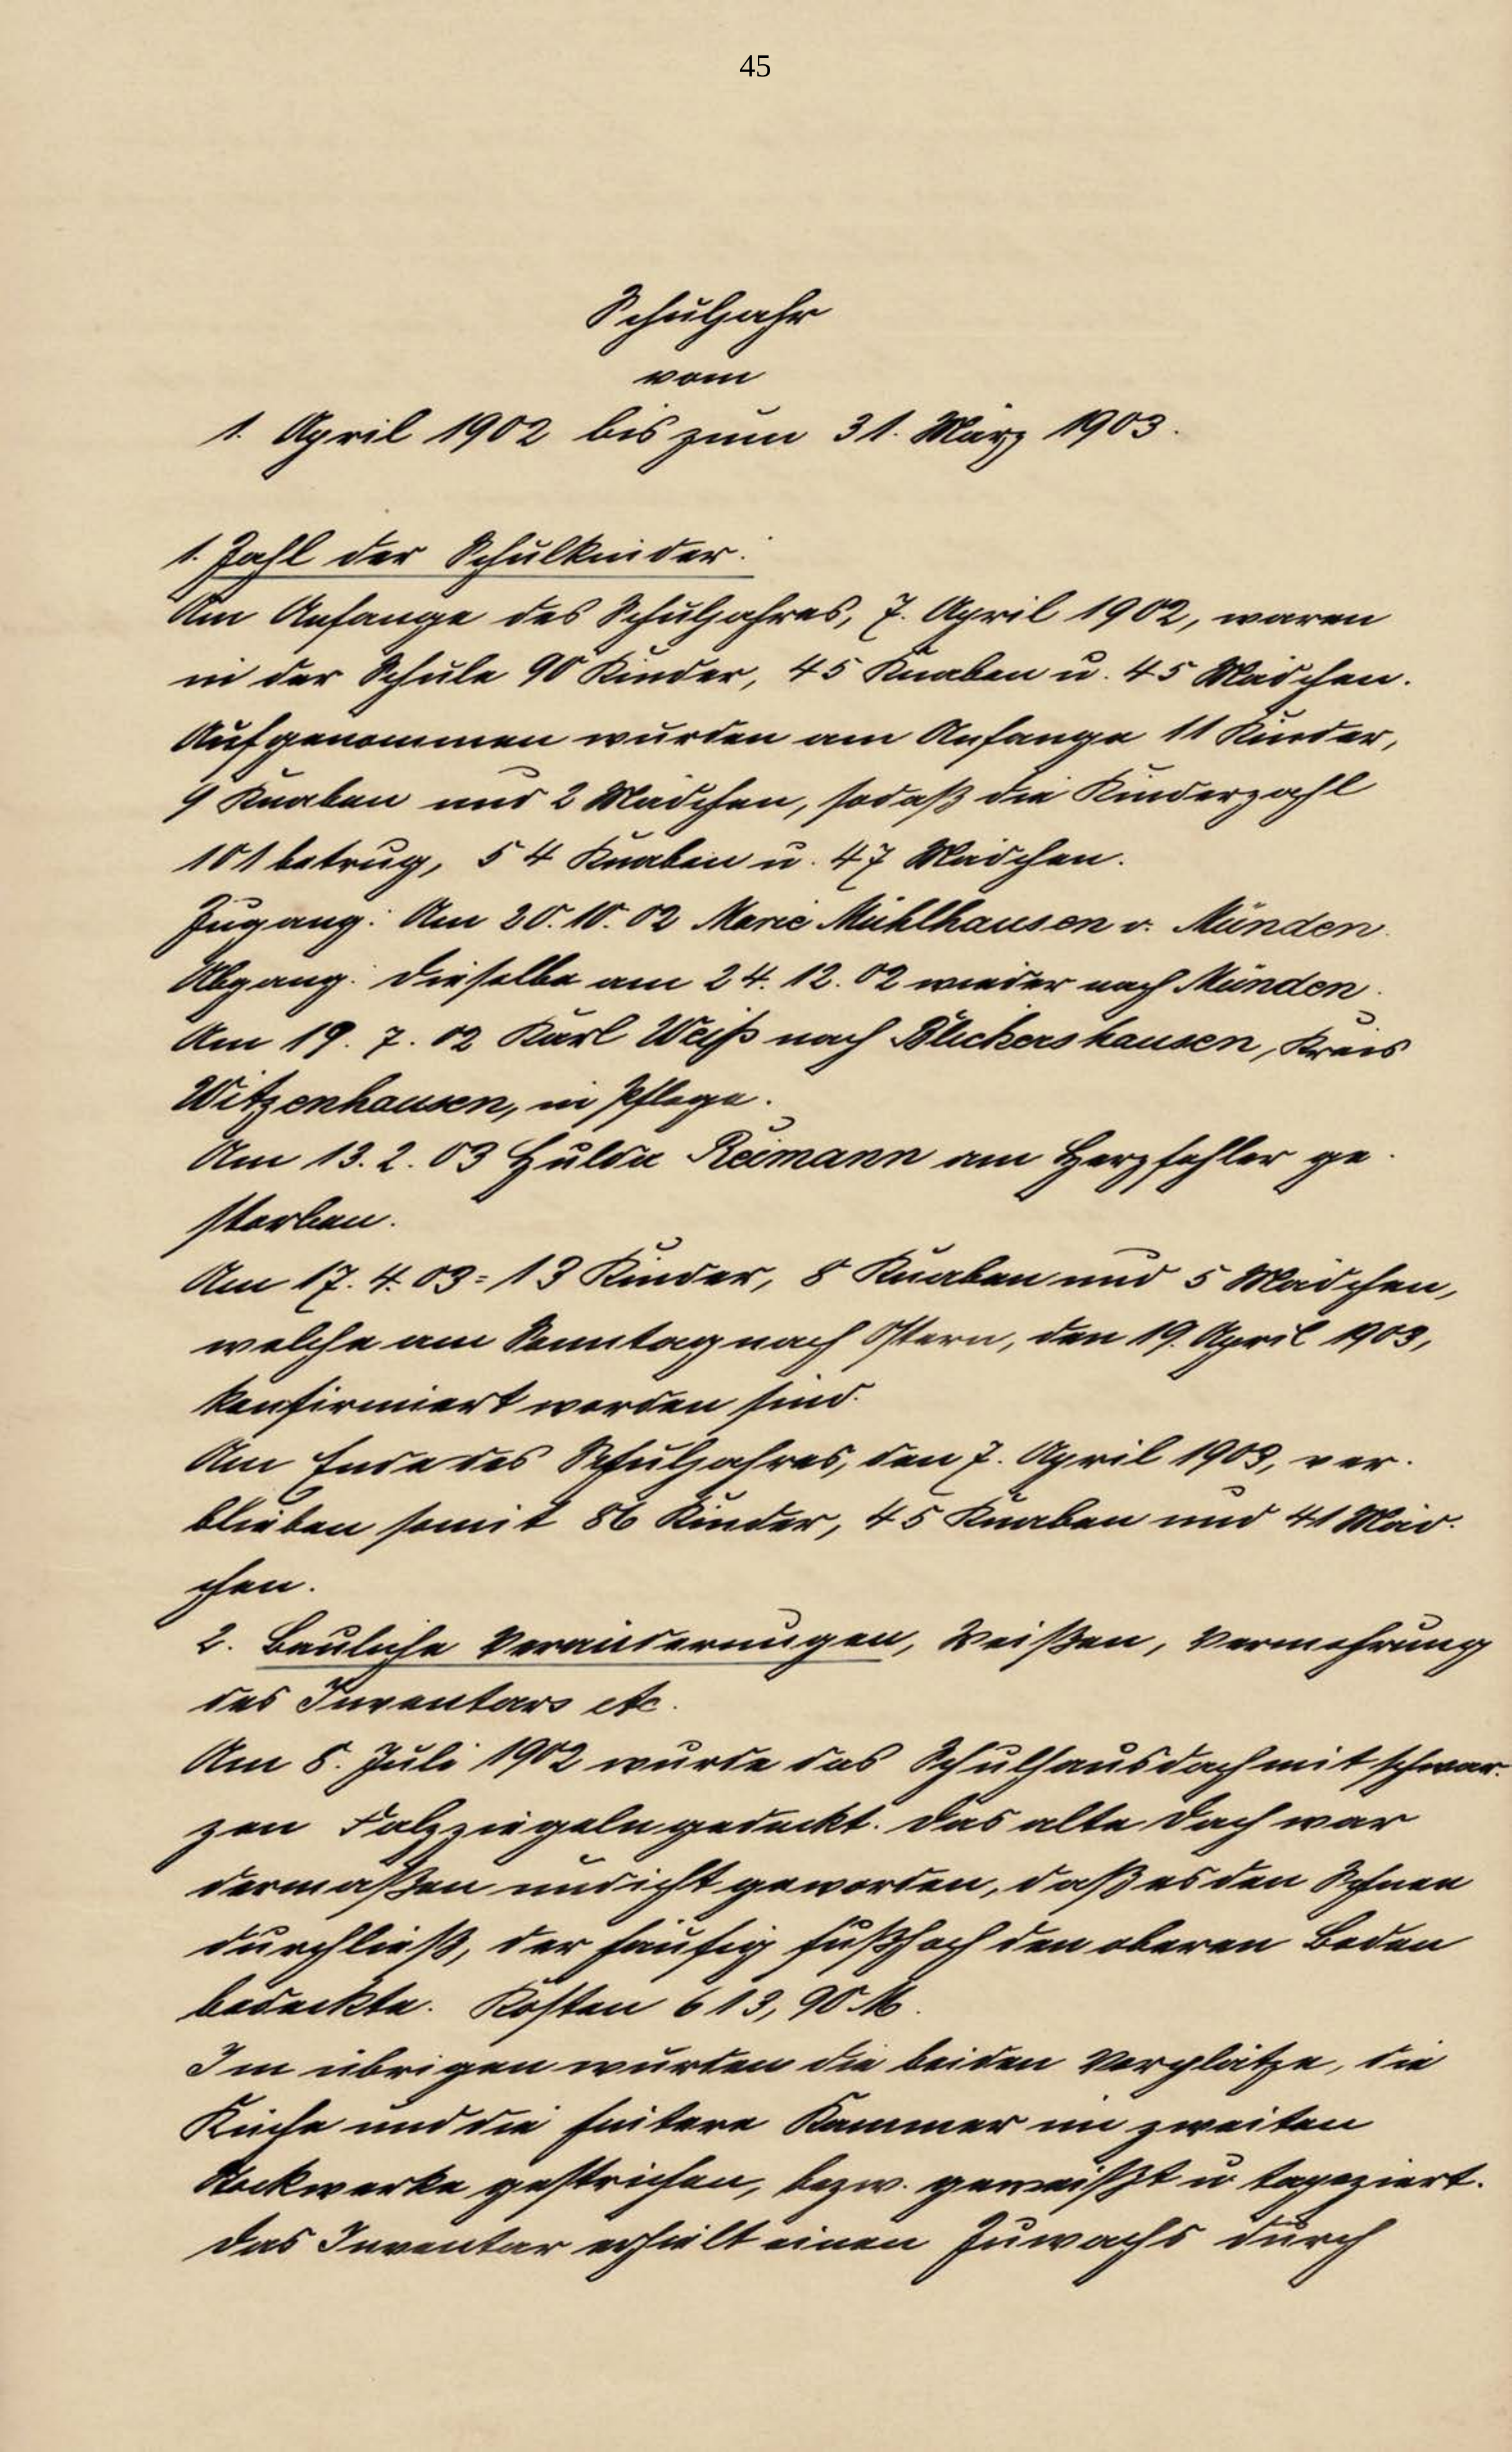 45
Schuljahr
vom
1. April 1902 bis zum 31. März 1903.
1. Zahl der Schulkinder:
Am Anfange des Schuljahres, 7. April 1902, waren
in der Schule 90 Kinder, 45 Knaben u. 45 Mädchen.
Aufgenommen wurden am Anfange 11 Kinder,
9 Knaben und 2 Mädchen, sodaß die Kinderzahl
101 betrug, 54 Knaben u. 47 Mädchen.
Zugang: Am 20.10.02 Marie Mühlhausen v. Münden.
Abgang: Dieselbe am 24.12.02 wieder nach Münden.
Am 19.7.02 Karl Weiß nach Blickershausen, Kreis
Witzenhausen, in Pflege.
Am 13.2.03 Hulda Reimann am Herzfehler ge-
storben.
Am 17.4.03 = 13 Kinder, 8 Knaben und 5 Mädchen,
welche am Sonntag nach Ostern, den 19. April 1903,
konfirmiert worden sind.
Am Ende des Schuljahres, den 7. April 1903, ver-
blieben somit 86 Kinder, 45 Knaben und 41 Mäd-
chen.
2. Bauliche Veränderungen, Weißen, Vermehrung
des Inventars etc.
Am 8. Juli 1902 wurde das Schulhausdach mit schwar-
zen Falzziegeln gedeckt. Das alte Dach war
dermaßen undicht geworden, daß es den Schnee
durchließ, der häufig fußhoch den oberen Boden
bedeckte. Kosten 613,90 M.
Im übrigen wurden die beiden Vorplätze, die
Küche und die hintere Kammer im zweiten
Stockwerke gestrichen, bezw. geweißt u tapeziert.
Das Inventar erhielt einen Zuwachs durch